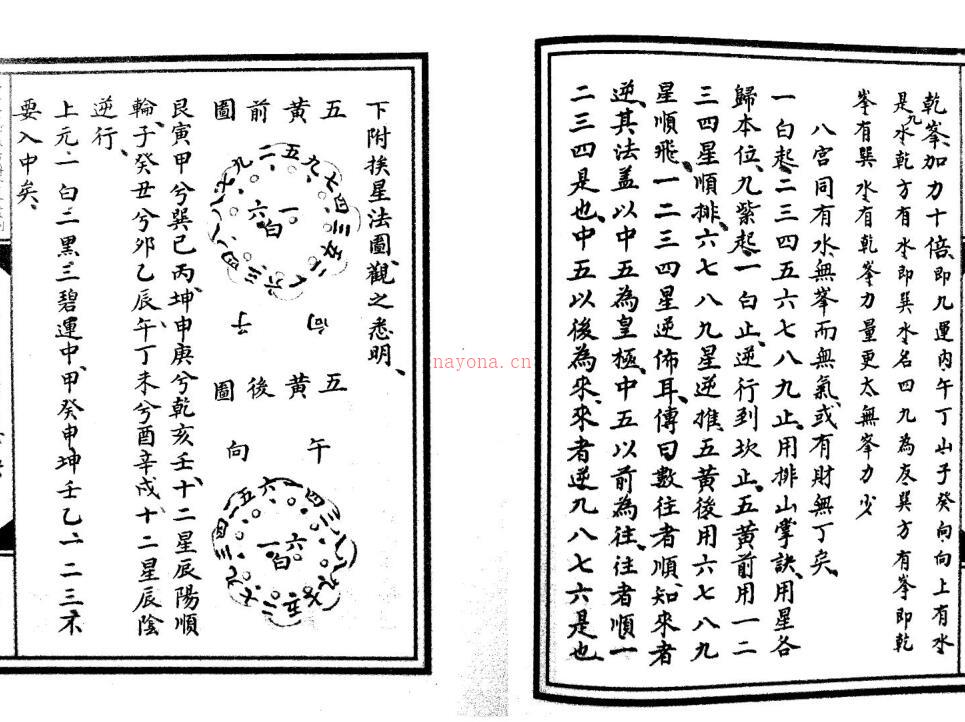 乾峯、加力十倍、即九運內午丁山子癸向、向上有水
是九水乾方有水即巽水名四九為友巽方有峯即乾
峯有巽水有乾峯力量更太無峯力少
八宮同有水無峯而無氣、或有財無丁矣、
一白起、二三四五六七八九止、用排山掌訣、用星各
歸本位、九紫起、一白止、逆行到坎止、五黃前用一二
三四星順排、六七八九星逆推、五黃後用六七八九
星順飛、一二三四星逆佈耳、傳曰數往者順、知來者
逆、其法蓋以中五為皇極、中五以前為往、往者順一
二三四是也、中五以後為來、來者逆九八七六是也、
下附挨星法圖、觀之悉明、
五黃前圖
一白
六
向
子
五黃後圖
午
向
六
一白
艮寅甲兮巽巳丙、坤申庚兮乾亥壬、十二星辰陽順
輪、子癸丑兮卯乙辰、午丁未兮酉辛戌、十二星辰陰
逆行、
上元一白二黑三碧運中、甲癸申坤壬乙一二三不
要入中矣、
nayona.cn